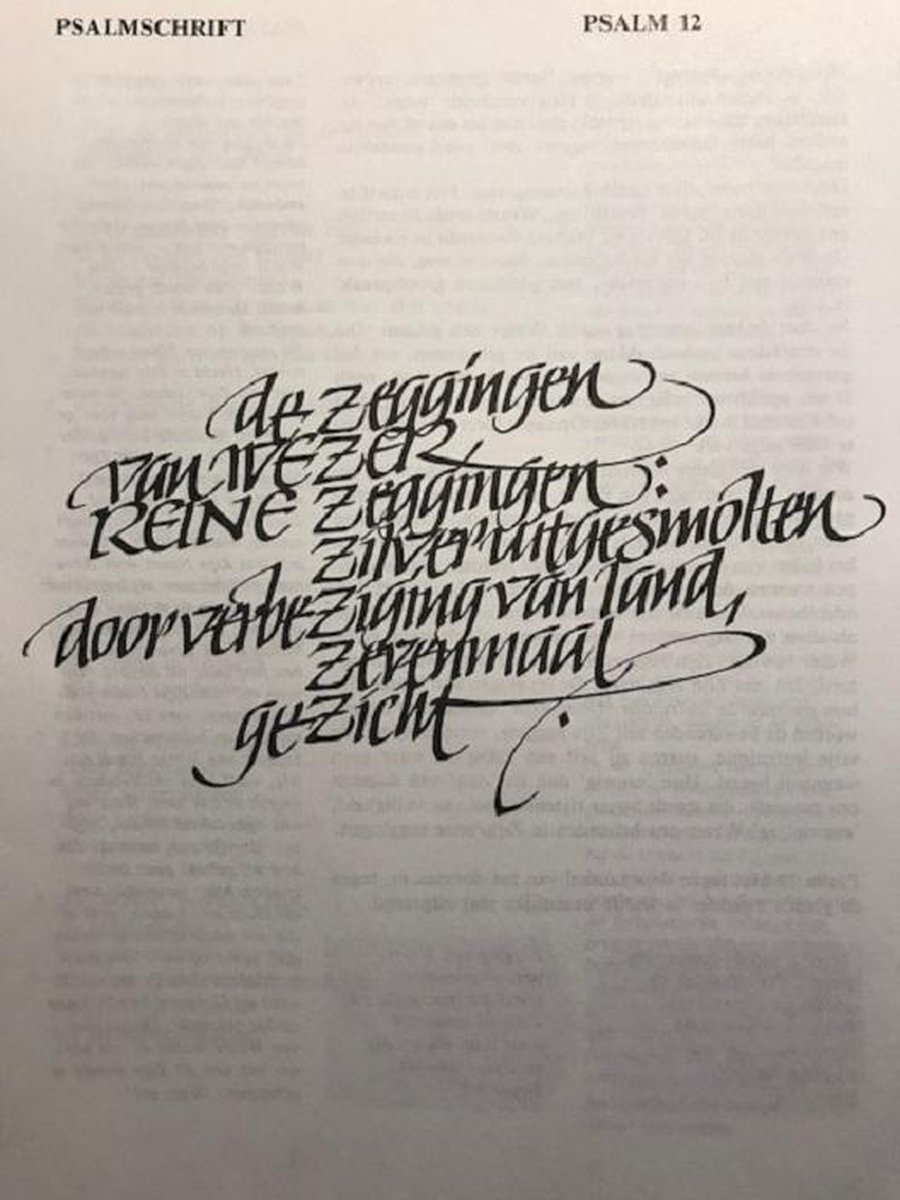 PSALMSCHRIFT PSALM 12
de zeggingen
van WEZER
REINE zeggingen:
zilver uitgesmolten
door verbeziging van land,
zevenmaal
gezicht.